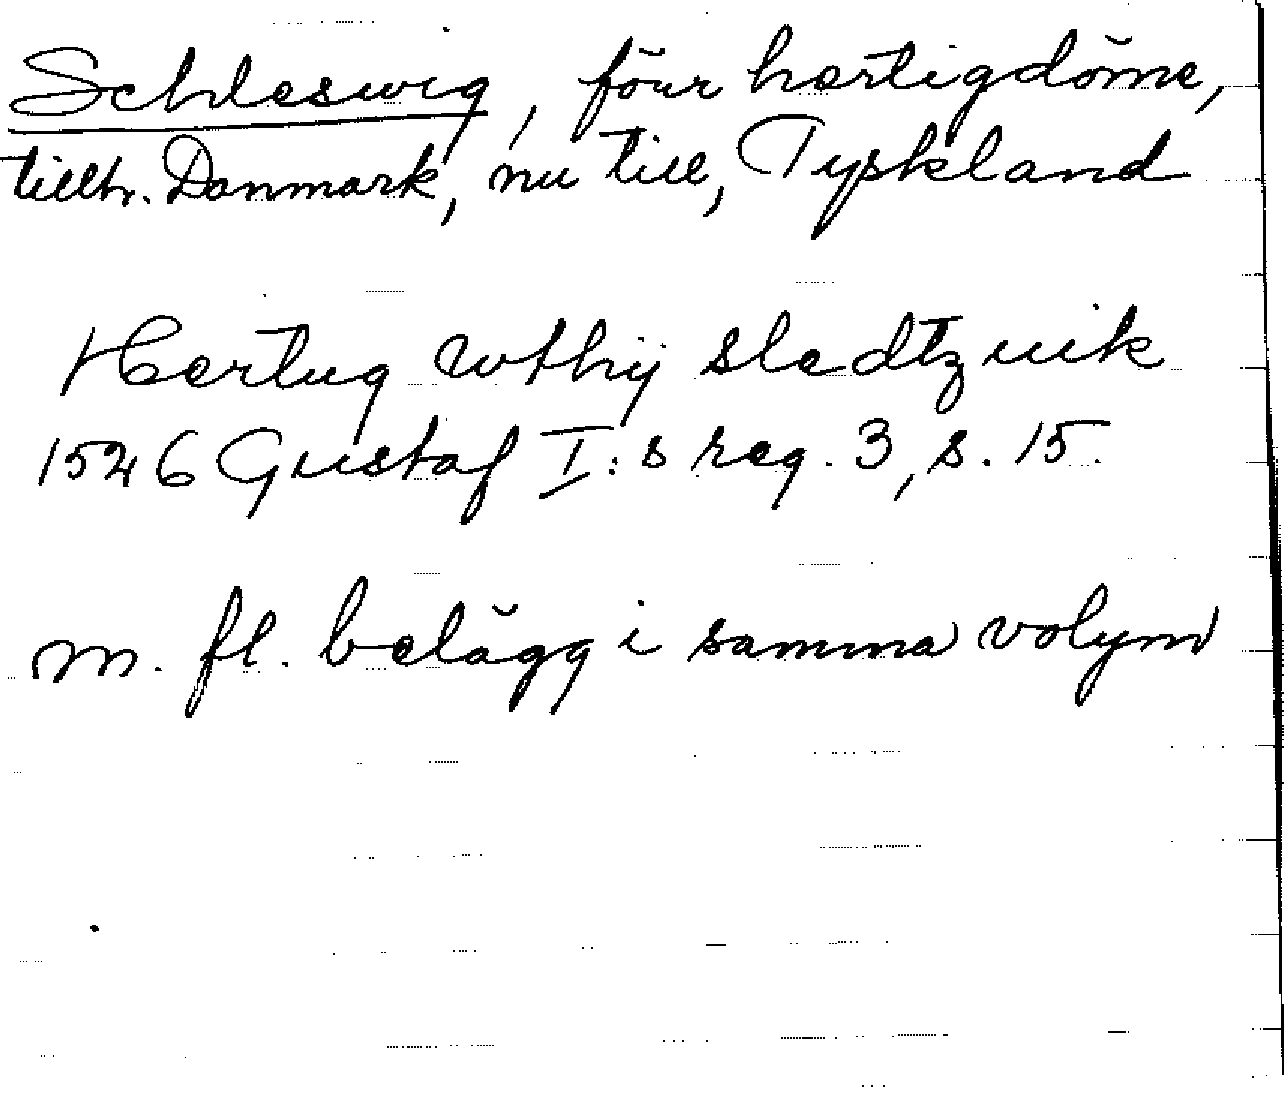 Schleswig, förr hertigdöme,
tillh. Danmark, nu till, Tyskland
Hertug wthij sledtzuik
1526 Gustaf I:s reg. 3, s. 15.
m. fl. belägg i samma volym